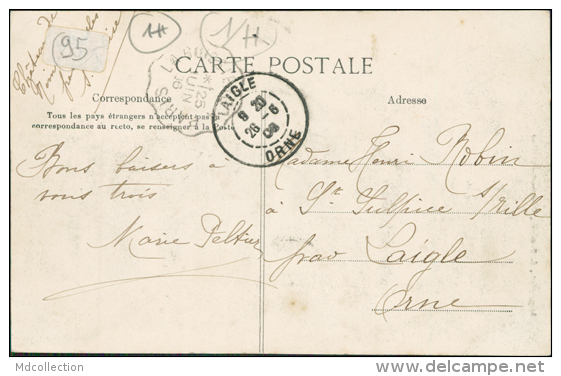 Château de
95
1H
1/H
CARTE POSTALE
Correspondance
Adresse
Tous les pays étrangers n'acceptent pas
correspondance au recto, se renseigner à la Poste
25
JUIN
06
LAIGLE
8 20
26 - 6
06
ORNE
Bons baisers à
vous trois
Marie Peltier
Madame Henri Robin
à St Sulpice s/Rille
par Laigle
Orne
Mdcollection
www.delcampe.net